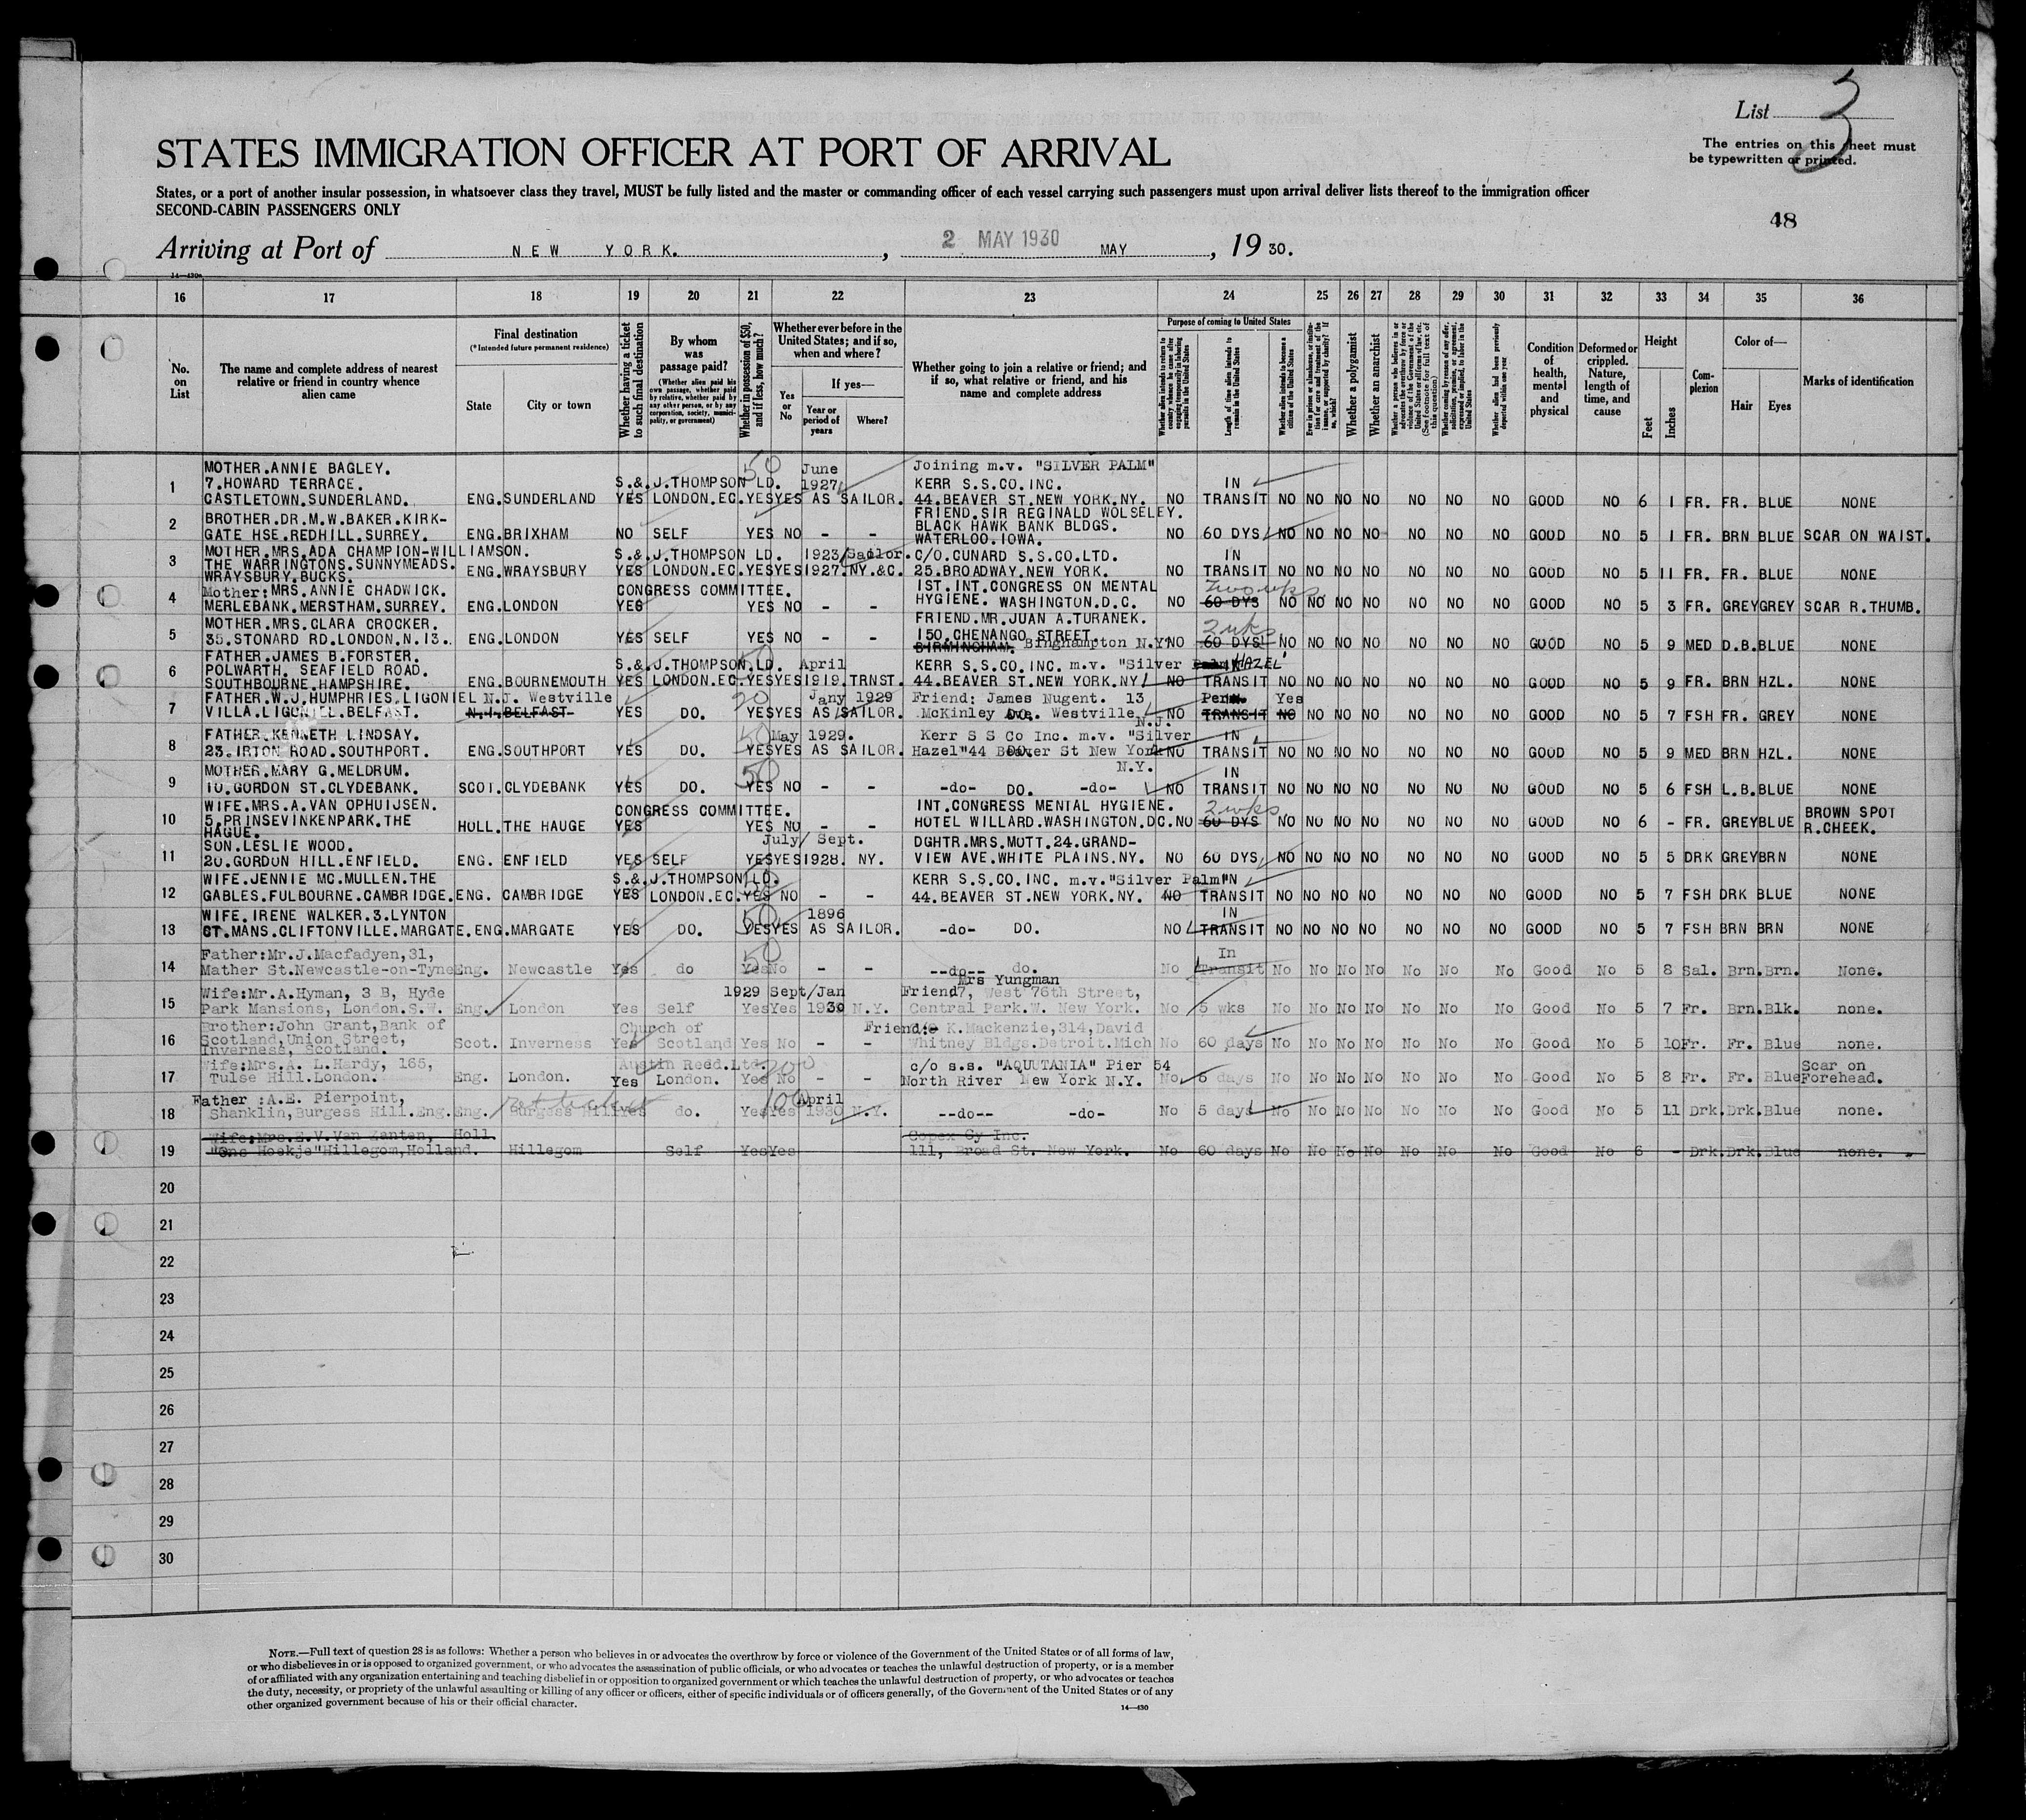 List 3
The entries on this sheet must
be typewritten or printed.
STATES IMMIGRATION OFFICER AT PORT OF ARRIVAL
States, or a port of another insular possession, in whatsoever class they travel, MUST be fully listed and the master or commanding officer of each vessel carrying such passengers must upon arrival deliver lists thereof to the immigration officer
SECOND-CABIN PASSENGERS ONLY
48
Arriving at Port of NEW YORK. , 2 MAY 1930 MAY , 19 30.
16 17 18 19 20 21 22 23 24 25 26 27 28 29 30 31 32 33 34 35 36
No. on List
The name and complete address of nearest relative or friend in country whence alien came
Final destination
(*Intended future permanent residence)
State
City or town
Whether having a ticket to such final destination
By whom was passage paid?
(Whether alien paid his own passage, whether paid by relative, whether paid by any other person, or by any corporation, society, municipality, or government)
Whether in possession of $50, and if less, how much?
Whether ever before in the United States; and if so, when and where?
Yes or No
If yes—
Year or period of years
Where?
Whether going to join a relative or friend; and if so, what relative or friend, and his name and complete address
Purpose of coming to United States
Length of time alien intends to remain in the United States
Whether alien intends to become a citizen of the United States
Whether a polygamist
Whether an anarchist
Condition of health, mental and physical
Deformed or crippled. Nature, length of time, and cause
Height
Feet
Inches
Complexion
Color of—
Hair
Eyes
Marks of identification
1 MOTHER.ANNIE BAGLEY. S.&.J.THOMPSON LD. 50 June Joining m.v. "SILVER PALM"
7.HOWARD TERRACE. 1927 KERR S.S.CO.INC. IN
CASTLETOWN.SUNDERLAND. ENG. SUNDERLAND YES LONDON.EC. YES YES AS SAILOR. 44.BEAVER ST.NEW YORK.NY. NO TRANSIT NO NO NO NO NO NO NO GOOD NO 6 1 FR. FR. BLUE NONE
2 BROTHER.DR.M.W.BAKER.KIRK- FRIEND.SIR REGINALD WOLSELEY.
GATE HSE.REDHILL.SURREY. ENG. BRIXHAM NO SELF YES NO - - BLACK HAWK BANK BLDGS.
WATERLOO.IOWA. NO 60 DYS NO NO NO NO NO NO NO GOOD NO 5 1 FR. BRN BLUE SCAR ON WAIST.
3 MOTHER.MRS.ADA CHAMPION-WILLIAMSON. S.&.J.THOMPSON LD. 1923/ Sailor. C/O.CUNARD S.S.CO.LTD. IN
THE WARRINGTONS.SUNNYMEADS.
WRAYSBURY.BUCKS. ENG. WRAYSBURY YES LONDON.EC. YES YES 1927. NY.&C. 25.BROADWAY.NEW YORK. NO TRANSIT NO NO NO NO NO NO NO GOOD NO 5 11 FR. FR. BLUE NONE
4 Mother: MRS.ANNIE CHADWICK. CONGRESS COMMITTEE. 1ST.INT.CONGRESS ON MENTAL Two wks
MERLEBANK.MERSTHAM.SURREY. ENG. LONDON YES YES NO - - HYGIENE. WASHINGTON.D.C. NO 60 DYS NO NO NO NO NO NO NO GOOD NO 5 3 FR. GREY GREY SCAR R.THUMB.
5 MOTHER.MRS.CLARA CROCKER. FRIEND.MR.JUAN A.TURANEK.
35.STONARD RD.LONDON.N.13. ENG. LONDON YES SELF YES NO - - 150.CHENANGO STREET. 2 wks
BIRMINGHAM. Binghampton N.Y. NO 60 DYS NO NO NO NO NO NO NO GOOD NO 5 9 MED D.B. BLUE NONE
6 FATHER.JAMES B.FORSTER. S.&.J.THOMPSON.LD. April KERR S.S.CO.INC. m.v. "Silver Palm HAZEL"
POLWARTH. SEAFIELD ROAD.
SOUTHBOURNE.HAMPSHIRE. ENG. BOURNEMOUTH YES LONDON.EC. YES YES 1919. TRNST. 44.BEAVER ST.NEW YORK.NY. NO TRANSIT NO NO NO NO NO NO NO GOOD NO 5 9 FR. BRN HZL. NONE
7 FATHER.W.J.HUMPHRIES.LIGONIEL N.J. Westville 20 Jany 1929 Friend: James Nugent. 13 Perm. Yes
VILLA.LIGONIEL.BELFAST. N.I. BELFAST YES DO. YES YES AS SAILOR. McKinley Ave. Westville N.J. NO TRANSIT NO NO NO NO NO NO NO GOOD NO 5 7 FSH FR. GREY NONE
8 FATHER.KENNETH LINDSAY. 50 May 1929. Kerr S S Co Inc. m.v. "Silver IN
23.IRTON ROAD.SOUTHPORT. ENG. SOUTHPORT YES DO. YES YES AS SAILOR. Hazel" 44 Beaver St New York NO TRANSIT NO NO NO NO NO NO NO GOOD NO 5 9 MED BRN HZL. NONE
N.Y.
9 MOTHER.MARY G.MELDRUM. 50 IN
10.GORDON ST.CLYDEBANK. SCOT. CLYDEBANK YES DO. YES NO - - -do- DO. -do- NO TRANSIT NO NO NO NO NO NO NO GOOD NO 5 6 FSH L.B. BLUE NONE
10 WIFE.MRS.A.VAN OPHUIJSEN. CONGRESS COMMITTEE. INT.CONGRESS MENIAL HYGIENE. 2 wks BROWN SPOT
5.PRINSEVINKENPARK.THE
HAGUE. HOLL. THE HAUGE YES YES NO - - HOTEL WILLARD.WASHINGTON.DC. NO 60 DYS NO NO NO NO NO NO NO GOOD NO 6 - FR. GREY BLUE R.CHEEK.
11 SON.LESLIE WOOD. July/ Sept. DGHTR.MRS.MOTT.24.GRAND-
20.GORDON HILL.ENFIELD. ENG. ENFIELD YES SELF YES YES 1928. NY. VIEW AVE.WHITE PLAINS.NY. NO 60 DYS NO NO NO NO NO NO NO GOOD NO 5 5 DRK GREY BRN NONE
12 WIFE.JENNIE MC.MULLEN.THE S.&.J.THOMPSON LD. 50 KERR S.S.CO.INC. m.v."Silver Palm" IN
GABLES.FULBOURNE.CAMBRIDGE. ENG. CAMBRIDGE YES LONDON.EC. YES NO - - 44.BEAVER ST.NEW YORK.NY. NO TRANSIT NO NO NO NO NO NO NO GOOD NO 5 7 FSH DRK BLUE NONE
13 WIFE.IRENE WALKER.3.LYNTON 50 1896 IN
CT.MANS.CLIFTONVILLE.MARGATE. ENG. MARGATE YES DO. YES YES AS SAILOR. -do- DO. NO TRANSIT NO NO NO NO NO NO NO GOOD NO 5 7 FSH BRN BRN NONE
14 Father:Mr.J.Macfadyen,31, 50 In
Mather St.Newcastle-on-Tyne Eng. Newcastle Yes do Yes No - - --do-- do. No Transit No No No No No No No Good No 5 8 Sal. Brn. Brn. None.
15 Wife:Mr.A.Hyman, 3 B, Hyde 1929 Sept/Jan Friend Mrs Yungman 7, West 76th Street,
Park Mansions, London.S.W. Eng. London Yes Self Yes Yes 1930 N.Y. Central Park.W. New York. No 5 wks No No No No No No No Good No 5 7 Fr. Brn. Blk. none.
16 Brother:John Grant,Bank of Church of Friend: K.Mackenzie,314,David
Scotland,Union Street,
Inverness, Scotland. Scot. Inverness Yes Scotland Yes No - - Whitney Bldgs.Detroit.Mich No 60 days No No No No No No No Good No 5 10 Fr. Fr. Blue none.
17 Wife:Mrs.A. L.Hardy, 165, Austin Reed.Ltd. 200 c/o s.s. "AQUUTANIA" Pier 54 Scar on
Tulse Hill.London. Eng. London. Yes London. Yes No - - North River New York N.Y. No 5 days No No No No No No No Good No 5 8 Fr. Fr. Blue Forehead.
18 Father :A.E. Pierpoint, 100 April
Shanklin,Burgess Hill.Eng. Eng. Burgess Hill Yes do. Yes Yes 1930 N.Y. --do-- -do- No 5 days No No No No No No No Good No 5 11 Drk. Drk. Blue none.
19 Wife:Mrs.E.V.Van Zanten, Holl. Copex Cy Inc.
"Ons Hoekje"Hillegom,Holland. Hillegom Self Yes Yes 111, Broad St. New York. No 60 days No No No No No No No Good No 6 - Drk. Drk. Blue none.
20
21
22
23
24
25
26
27
28
29
30
NOTE.—Full text of question 28 is as follows: Whether a person who believes in or advocates the overthrow by force or violence of the Government of the United States or of all forms of law,
or who disbelieves in or is opposed to organized government, or who advocates the assassination of public officials, or who advocates or teaches the unlawful destruction of property, or is a member
of or affiliated with any organization entertaining and teaching disbelief in or opposition to organized government or which teaches the unlawful destruction of property, or who advocates or teaches
the duty, necessity, or propriety of the unlawful assaulting or killing of any officer or officers, either of specific individuals or of officers generally, of the Government of the United States or of any
other organized government because of his or their official character.
14—430